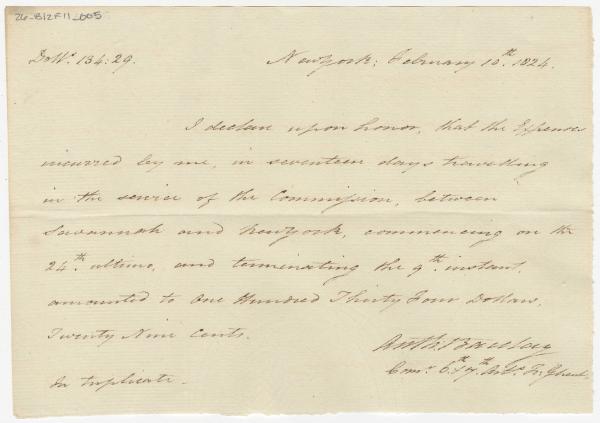 26-B12F11_005
Dolls. 134:29.
New York; February 10th. 1824.
I declare upon honor, that the Expenses
incurred by me, in seventeen days travelling
in the service of the Commission, between
Savannah and New York, commencing on the
24th. ultimo, and terminating the 9th. instant,
amounted to One Hundred Thirty Four Dollars,
Twenty Nine Cents.
Anth: Barclay
Comr. 6th & 7th. Arts. Tr. Ghent.
In triplicate.